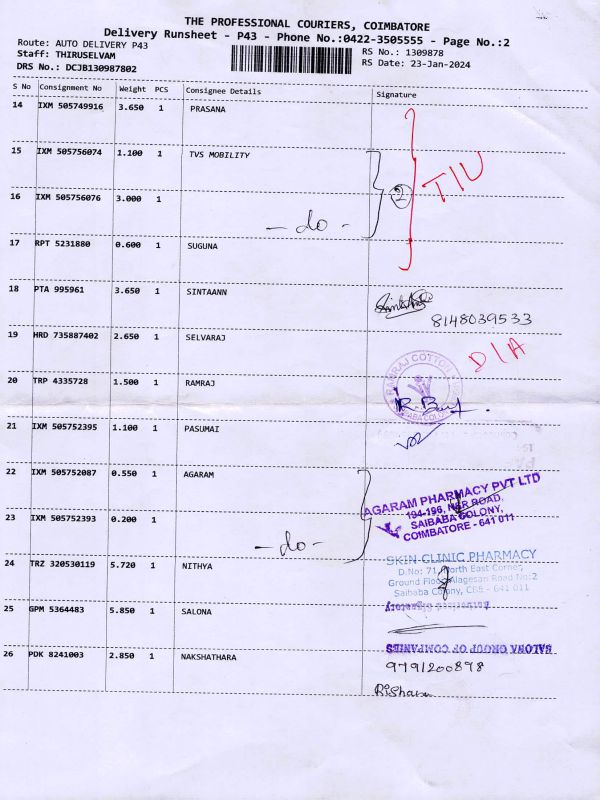 THE PROFESSIONAL COURIERS, COIMBATORE
Delivery Runsheet - P43 - Phone No.:0422-3505555 - Page No.:2
Route: AUTO DELIVERY P43
Staff: THIRUSELVAM
DRS No.: DCJB130987802
RS No.: 1309878
RS Date: 23-Jan-2024
S No Consignment No Weight PCS Consignee Details Signature
14 IXM 505749916 3.650 1 PRASANA
15 IXM 505756074 1.100 1 TVS MOBILITY
16 IXM 505756076 3.000 1
- do -
2
17 RPT 5231880 0.600 1 SUGUNA
18 PTA 995961 3.650 1 SINTAANN
8148039533
19 HRD 735887402 2.650 1 SELVARAJ
D/A
20 TRP 4335728 1.500 1 RAMRAJ
RAMRAJ COTTON
21 IXM 505752395 1.100 1 PASUMAI
22 IXM 505752087 0.550 1 AGARAM
AGARAM PHARMACY PVT LTD
194-196, NSR ROAD,
SAIBABA COLONY,
COIMBATORE - 641 011
23 IXM 505752393 0.200 1
- do -
24 TRZ 320530119 5.720 1 NITHYA
SKIN CLINIC PHARMACY
D.No: 71, North East Corner,
Ground Floor, Alagesan Road No:2
Saibaba Colony, CBE - 641 011
25 GPM 5364483 5.850 1 SALONA
Authorised Signatory
SALONA GROUP OF COMPANIES
26 PDK 8241003 2.850 1 NAKSHATHARA
9791200898